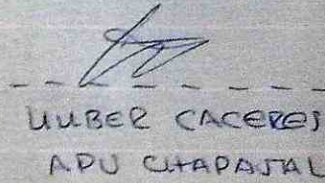 HUBER CACERES
APU CHAPAJAL